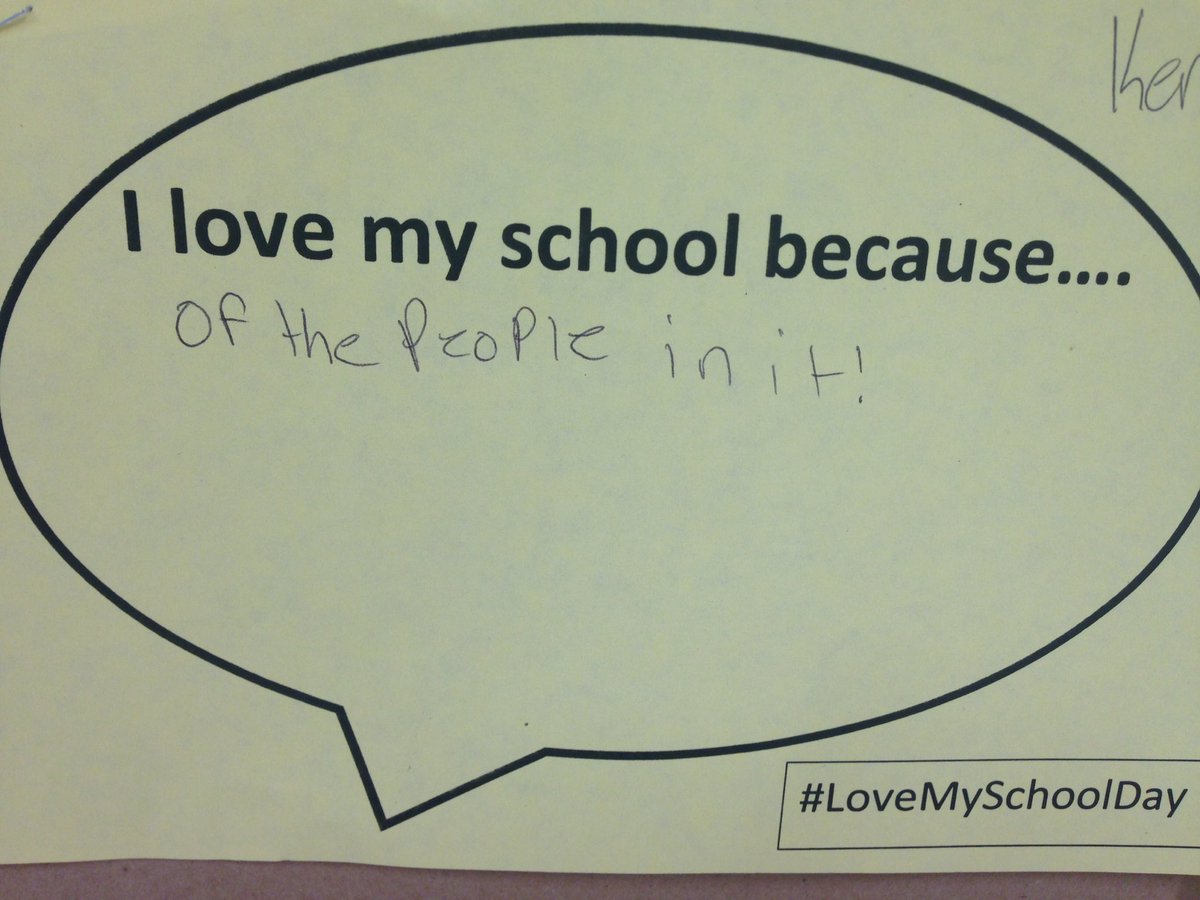 I love my school because....
of the people in it!
#LoveMySchoolDay